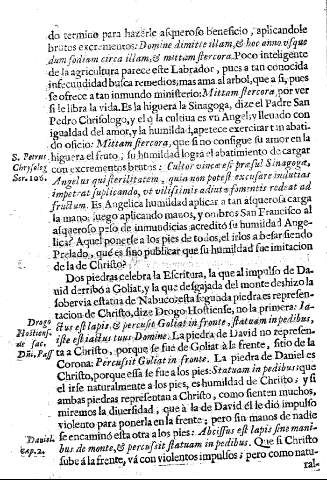 do termino para hazerle asqueroso beneficio, aplicandole
brutos excrementos: Domine dimitte illam, & hoc anno vsque
dum fodiam circa illam, & mittam stercora. Poco inteligente
de la agricultura parece este Labrador, pues a tan conocida
infecundidad busca remedios; mas ama al arbol, que a si, pues
se ofrece a tan inmundo ministerio: Mittam stercora, por ver
si le libra la vida. Es la higuera la Sinagoga, dize el Padre San
Pedro Chrisologo, y el q̃ la cultiua es vn Angel; y lleuado con
igualdad del amor, y la humildad, apetece exercitar tan abati-
do oficio: Mittam stercora, que si no configue su amor en la
higuera el fruto; su humildad logra el abatimiento de cargar
con excrementos brutos: Cultor vineæ est præsul Sinagogæ,
Angelus qui sterilitatem, quia non potest excusare inducias
impetrat suplicando, vt vilissimis adiuta fomentis redeat ad
fructum. Es Angelica humildad aplicar a tan asquerosa carga
la mano; luego aplicando manos, y ombros San Francisco al
asqueroso peso de inmundicias acreditó su humildad Ange-
lica? Aquel ponerse a los pies de todos, el irlos a besar siendo
Prelado, què es sino publicar que su humildad fue imitacion
de la de Christo?
S. Petrus
Chrisolog.
Ser. 106.
Dos piedras celebra la Escritura, la que al impulso de Da-
uid derribò a Goliat, y la que desgajada del monte deshizo la
soberuia estatua de Nabuco: esta segunda piedra es represen-
tacion de Christo, dize Drogo Hostiense, no la primera: Ia-
ctus est lapis, & percusit Goliat in fronte, statuam in pedibus,
iste est iactus tuus Domine. La piedra de David no represen-
ta a Christo, porque se fue de Goliat à la frente, sitio de la
Corona: Percusit Goliat in fronte. La piedra de Daniel es
Christo, porque essa se fue a los pies: Statuam in pedibus: que
el irse naturalmente a los pies, es humildad de Christo; y si
ambas piedras representan a Christo, como sienten muchos,
miremos la diuersidad, que à la de Dauid él le dió impulso
violento para ponerla en la frente; pero sin manos de nadie
se encaminò esta otra a los pies: Abscissus est lapis sine mani-
bus de monte, & percussit statuam in pedibus. Que si Christo
sube à la frente, và con violentos impulsos; pero como natu-
ral-
Drogo
Hostiens.
de sac.
Dñi, Pass
Daniel.
cap. 2.